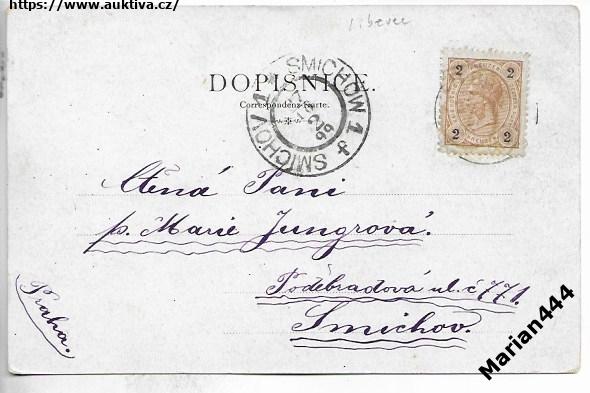 https://www.auktiva.cz/
Liberec
DOPISNICE.
Correspondenz-Karte.
SMICHOW 1
SMÍCHOV 1
99
2 2
2 2
Ctěná Paní
p. Marie Jungrová.
Poděbradová ul. č 771.
Smíchov.
Praha.
Marian444